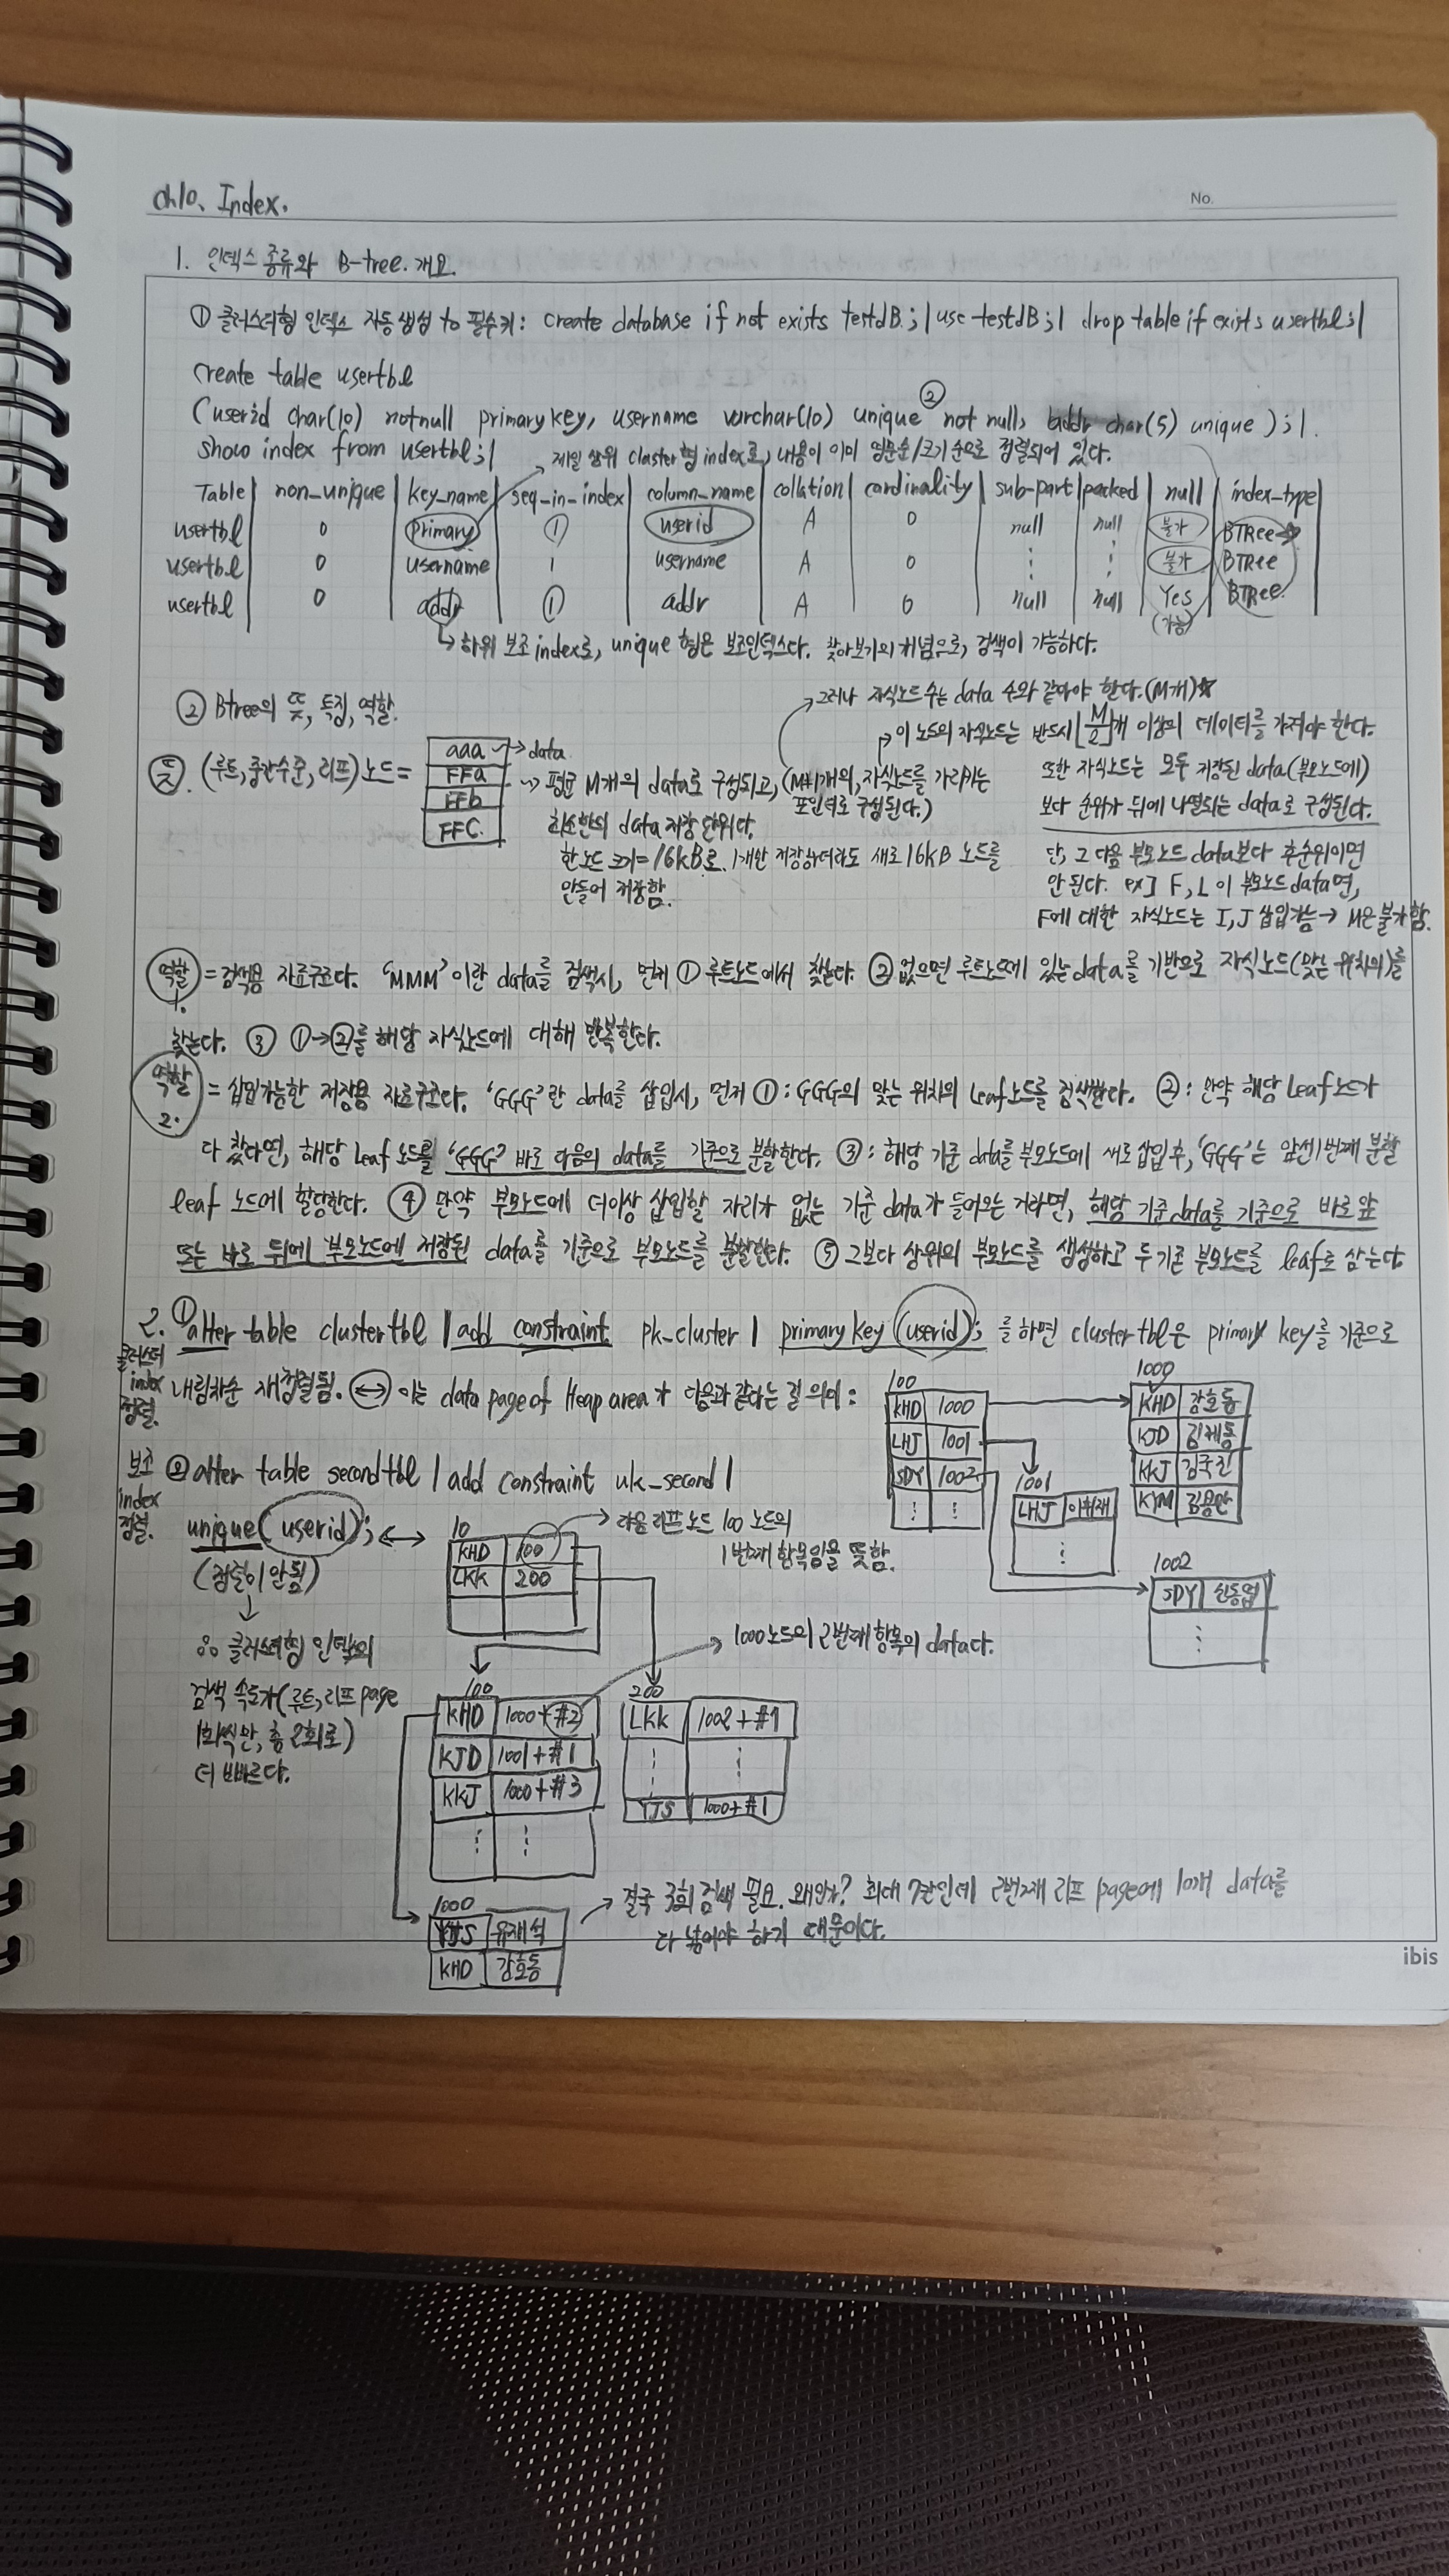 ch10. Index.
No.
1. 인덱스 종류와 B-tree. 개요.
① 클러스터형 인덱스 자동생성 to 필수키: create database if not exists testdB; | use testdB; | drop table if exists usertbl; |
create table usertbl
(userid char(10) notnull primary key, username varchar(10) unique ② not null, addr char(5) unique ); |.
show index from usertbl; |
→ 제일 상위 cluster형 index로, 내용이 이미 영문순/크기 순으로 정렬되어 있다.
Table | non_unique | key_name | seq-in-index | column_name | collation | cardinality | sub-part | packed | null | index-type |
usertbl | 0 | primary | ① | userid | A | 0 | null | null | 불가 | BTRee
usertbl | 0 | username | 1 | username | A | 0 | ⋮ | ⋮ | 불가 | BTRee
usertbl | 0 | addr | ① | addr | A | 0 | null | null | Yes | BTRee.
(가능)
↳ 하위 보조 index로, unique 형은 보조인덱스다. 찾아보기의 개념으로, 검색이 가능하다.
② Btree의 뜻, 특징, 역할.
→ 그러나 자식노드 수는 data 수와 같아야 한다. (M개)☆
→ 이 노드의 자식노드는 반드시 [M/2]개 이상의 데이터를 가져야 한다.
뜻. (루트, 중간수준, 리프) 노드 =
aaa → data
FFa
FFb
FFC.
→ 평균 M개의 data로 구성되고, (M+1개의, 자식노드를 가리키는
포인터로 구성된다.)
최소한의 data 저장 단위다.
한 노드 크기 = 16kB로. 1개만 저장하더라도 새로 16kB 노드를
만들어 저장함.
또한 자식노드는 모두 저장된 data(부모노드에)
보다 순위가 뒤에 나열되는 data로 구성된다.
단, 그 다음 부모노드 data보다 후순위이면
안 된다. ex] F, L 이 부모노드 data면,
F에 대한 자식노드는 I, J 삽입가능 → M은 불가함.
역할 1. = 검색용 자료구조다. 'MMM' 이란 data를 검색시, 먼저 ① 루트노드에서 찾는다. ② 없으면 루트노드에 있는 data를 기반으로 자식노드(맞는 위치의)를
찾는다. ③ ①→②를 해당 자식노드에 대해 반복한다.
역할 2. = 삽입가능한 저장용 자료구조다. 'GGG'란 data를 삽입시, 먼저 ①: GGG의 맞는 위치의 Leaf노드를 검색한다. ②: 만약 해당 Leaf노드가
다 찼다면, 해당 Leaf 노드를 'GGG' 바로 다음의 data를 기준으로 분할한다. ③: 해당 기준 data를 부모노드에 새로 삽입 후, 'GGG'는 앞선 1번째 분할
leaf 노드에 할당한다. ④ 만약 부모노드에 더이상 삽입할 자리가 없는 기준 data가 들어오는 거라면, 해당 기준 data를 기준으로 바로 앞
또는 바로 뒤에 부모노드에 저장된 data를 기준으로 부모노드를 분할한다. ⑤ 그보다 상위의 부모노드를 생성하고 두 기존 부모노드를 leaf로 삼는다.
2. ① alter table clustertbl | add constraint pk-cluster | primary key (userid); 를 하면 clustertbl은 primary key를 기준으로
클러스터 index 정렬.
내림차순 재정렬됨. ↔ 이는 data page of Heap area가 다음과 같다는 걸 의미:
100
KHD | 1000
LHJ | 1001
SDY | 1002
⋮ | ⋮
1000
KHD | 강호동
KJD | 김제동
KKJ | 김국진
KYM | 김용만
1001
LHJ | 이휘재
⋮
1002
SDY | 신동엽
⋮
보조 index 정렬.
② alter table secondtbl | add constraint uk_second |
unique (userid); ↔
(정렬이 안됨)
↓
∴ 클러스터형 인덱스의
검색 속도가 (루트, 리프 page
1회씩만, 총 2회로)
더 빠르다.
10
KHD | 100
LKK | 200
→ 다음 리프 노드 100 노드의
1번째 항목임을 뜻함.
→ 1000노드의 2번째 항목의 data다.
100
KHD | 1000+#2
KJD | 1001+#1
KKJ | 1000+#3
⋮ | ⋮
200
LKK | 1002+#1
⋮ | ⋮
YJS | 1000+#1
1000
YJS | 유재석
KHD | 강호동
→ 결국 3회 검색 필요. 왜일까? 최대 7칸인데 2번째 리프 page에 10개 data를
다 넣어야 하기 때문이다.
ibis